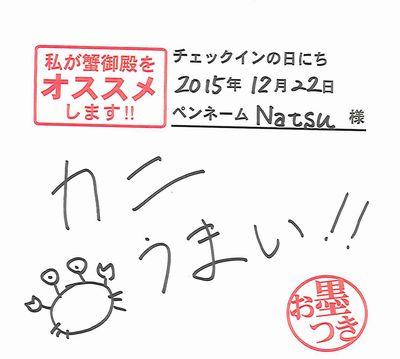 私が蟹御殿を
オススメ
します!!
チェックインの日にち
2015年 12月22日
ペンネーム Natsu 様
カニ
うまい!!
お墨
つき